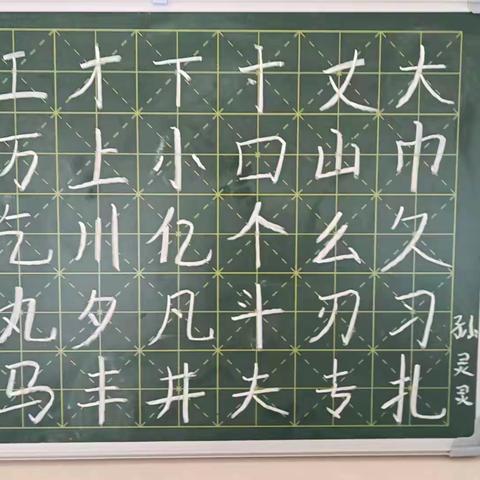 工才下寸丈大
万上小口山巾
乞川亿个么久
丸夕凡斗刃习
马丰井夫专扎
孙灵灵